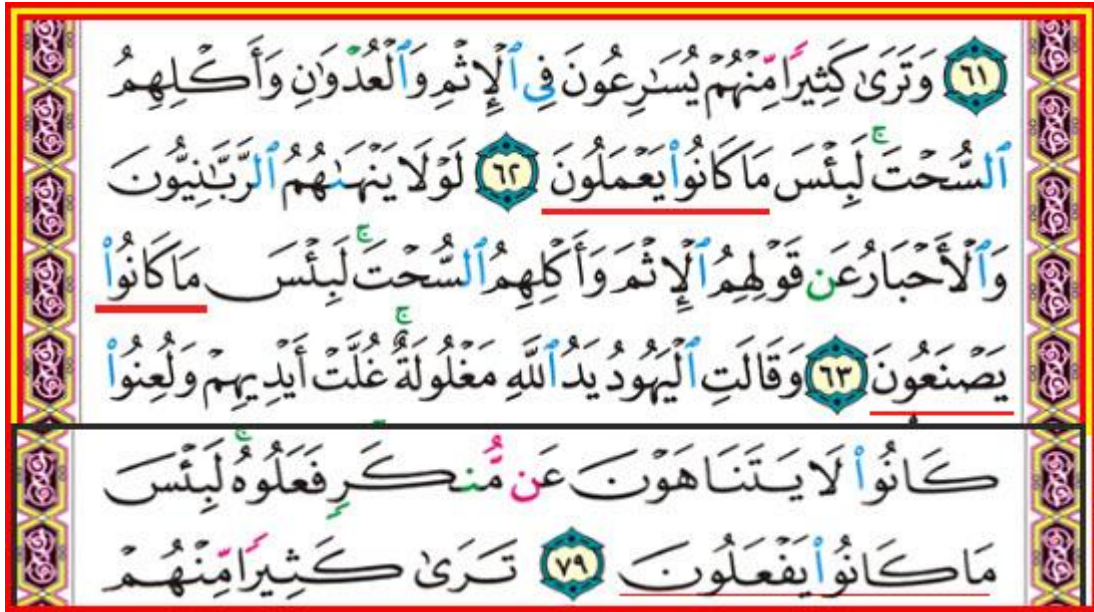 ﴿٦١﴾ وَتَرَىٰ كَثِيرًا مِّنْهُمْ يُسَٰرِعُونَ فِي ٱلْإِثْمِ وَٱلْعُدْوَٰنِ وَأَكْلِهِمُ
ٱلسُّحْتَ ۚ لَبِئْسَ مَا كَانُوا۟ يَعْمَلُونَ ﴿٦٢﴾ لَوْلَا يَنْهَىٰهُمُ ٱلرَّبَّٰنِيُّونَ
وَٱلْأَحْبَارُ عَن قَوْلِهِمُ ٱلْإِثْمَ وَأَكْلِهِمُ ٱلسُّحْتَ ۚ لَبِئْسَ مَا كَانُوا۟
يَصْنَعُونَ ﴿٦٣﴾ وَقَالَتِ ٱلْيَهُودُ يَدُ ٱللَّهِ مَغْلُولَةٌ ۚ غُلَّتْ أَيْدِيهِمْ وَلُعِنُوا۟
كَانُوا۟ لَا يَتَنَاهَوْنَ عَن مُّنكَرٍ فَعَلُوهُ ۚ لَبِئْسَ
مَا كَانُوا۟ يَفْعَلُونَ ﴿٧٩﴾ تَرَىٰ كَثِيرًا مِّنْهُمْ